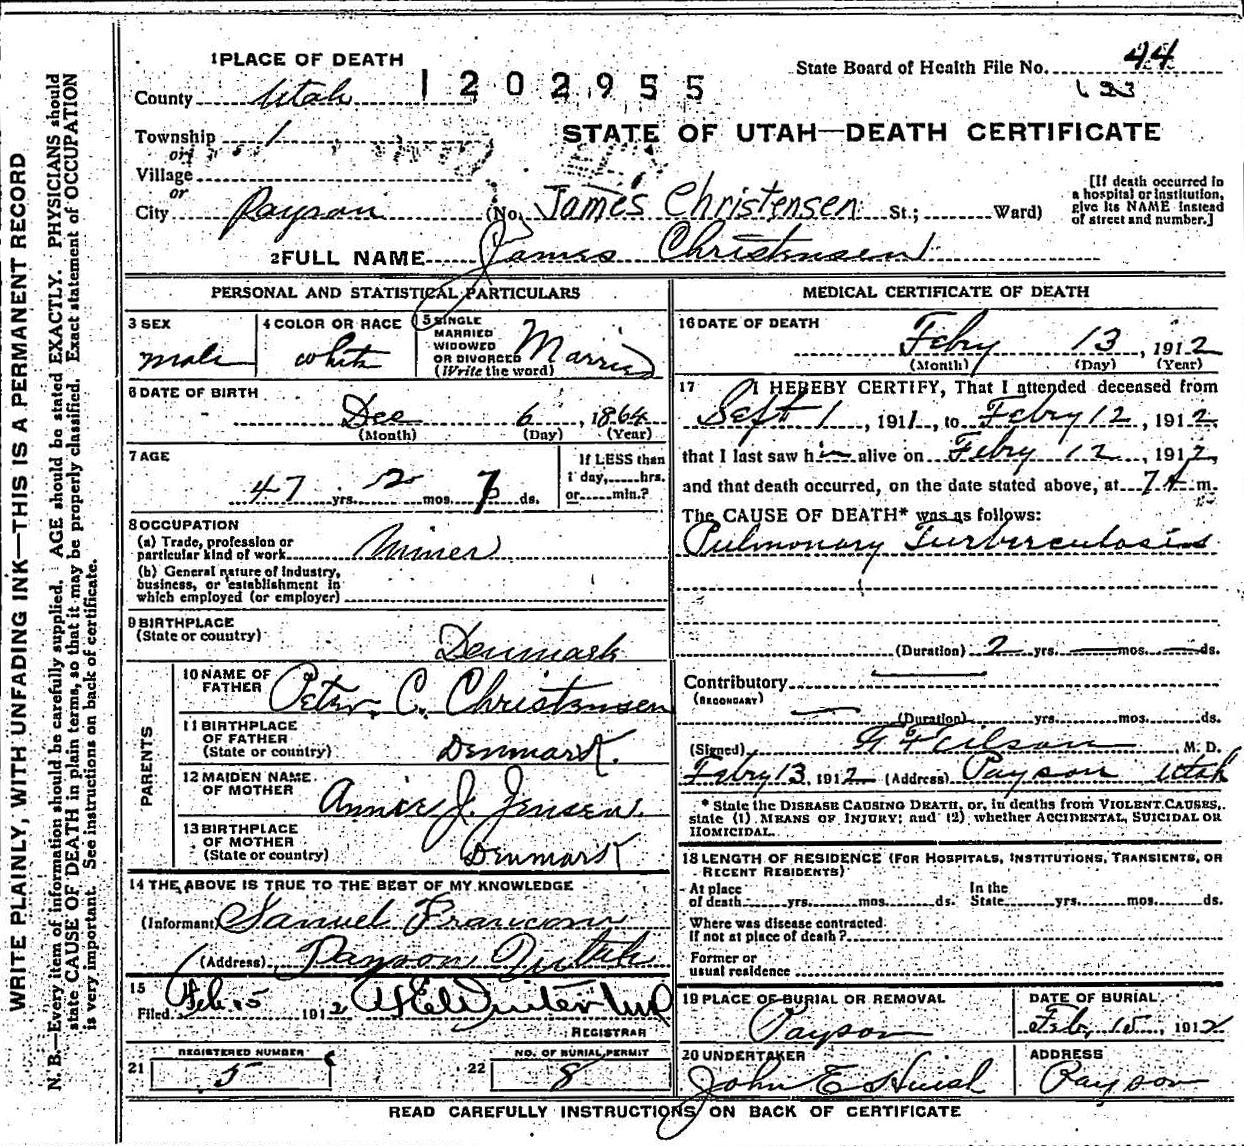 WRITE PLAINLY, WITH UNFADING INK—THIS IS A PERMANENT RECORD
N. B.—Every item of information should be carefully supplied. AGE should be stated EXACTLY. PHYSICIANS should
state CAUSE OF DEATH in plain terms, so that it may be properly classified. Exact statement of OCCUPATION
is very important. See instructions on back of certificate.
1 PLACE OF DEATH
State Board of Health File No. 44
County Utah 1202955
133
Township 1
STATE OF UTAH—DEATH CERTIFICATE
or
Village
or
City Payson (No. James Christensen St.; Ward)
[If death occurred in
a hospital or institution,
give its NAME instead
of street and number.]
2 FULL NAME James Christensen
PERSONAL AND STATISTICAL PARTICULARS
3 SEX
male
4 COLOR OR RACE
white
5 SINGLE
MARRIED
WIDOWED
OR DIVORCED
(Write the word)
Married
6 DATE OF BIRTH
Dec 6, 1864
(Month) (Day) (Year)
7 AGE
47 yrs. 2 mos. 7 ds.
If LESS than
1 day, hrs.
or min.?
8 OCCUPATION
(a) Trade, profession or
particular kind of work Miner
(b) General nature of industry,
business, or establishment in
which employed (or employer)
9 BIRTHPLACE
(State or country)
Denmark
PARENTS
10 NAME OF
FATHER
Peter C. Christensen
11 BIRTHPLACE
OF FATHER
(State or country)
Denmark.
12 MAIDEN NAME
OF MOTHER
Annie J. Jensen.
13 BIRTHPLACE
OF MOTHER
(State or country)
Denmark
14 THE ABOVE IS TRUE TO THE BEST OF MY KNOWLEDGE
(Informant) Samuel Francom
(Address) Payson Utah
15
Filed Feb. 15 1912
REGISTRAR
REGISTERED NUMBER
21 5
NO. OF BURIAL PERMIT
22 8
MEDICAL CERTIFICATE OF DEATH
16 DATE OF DEATH
Feby 13, 1912
(Month) (Day) (Year)
17 I HEREBY CERTIFY, That I attended deceased from
Sept 1, 1911, to Febry 12, 1912,
that I last saw him alive on Febry 12, 1912,
and that death occurred, on the date stated above, at 7 A m.
The CAUSE OF DEATH* was as follows:
Pulmonary Turberculosis
(Duration) 2 yrs. — mos. — ds.
Contributory
(SECONDARY)
(Duration) yrs. mos. ds.
(Signed) M. D.
Febry 13, 1912 (Address) Payson Utah
* State the DISEASE CAUSING DEATH, or, in deaths from VIOLENT CAUSES,
state (1) MEANS OF INJURY; and (2) whether ACCIDENTAL, SUICIDAL OR
HOMICIDAL.
18 LENGTH OF RESIDENCE (FOR HOSPITALS, INSTITUTIONS, TRANSIENTS, OR
RECENT RESIDENTS)
At place
of death yrs. mos. ds.
In the
State yrs. mos. ds.
Where was disease contracted
If not at place of death?
Former or
usual residence
19 PLACE OF BURIAL OR REMOVAL
Payson
DATE OF BURIAL
Feby 15, 1912
20 UNDERTAKER
John E
ADDRESS
Payson
READ CAREFULLY INSTRUCTIONS ON BACK OF CERTIFICATE